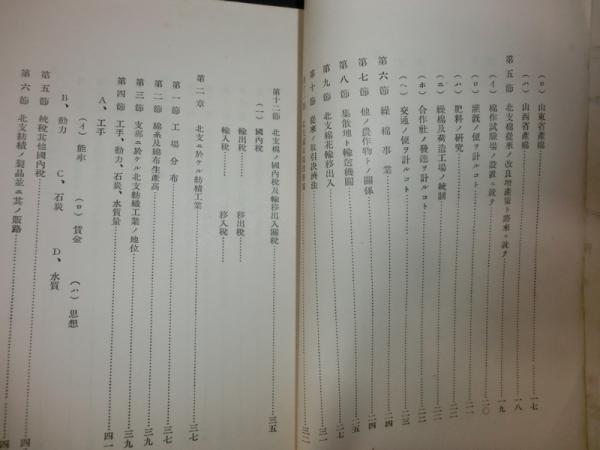 (ロ) 山東省產棉……一七
(ハ) 山西省產棉……一八
第五節 北支棉從來ノ改良增產策ト將來ニ就テ……一九
(イ) 棉作試驗場ノ設置ニ就テ……二〇
(ロ) 灌漑ノ便ヲ計ルコト……二一
(ハ) 肥料ノ研究……二一
(ニ) 繰棉及荷造工場ノ統制……二二
(ホ) 合作社ノ發達ヲ計ルコト……二二
(ヘ) 交通ノ便ヲ計ルコト……二三
第六節 繰棉事業……二四
第七節 他ノ農作物トノ關係……二四
第八節 集散地ト輸送機關……二五
第九節 北支棉花輸移出入……二七
第十節 從來ノ取引決濟法
第十二節 北支棉ノ國內稅及輸移出入關稅……三五
(一) 國內稅
輸出稅…… 移出稅……
輸入稅…… 移入稅……
第二章 北支ニ於ケル紡績工業……三七
第一節 工場分布……三七
第二節 棉糸及棉布生產高……三九
第三節 支那ニ於ケル北支紡織工業ノ地位……三九
第四節 工手、動力、石炭、水質量……四一
A、工手
(イ) 能率 (ロ) 賃金 (ハ) 思想
B、動力 C、石炭 D、水質
第五節 統稅其他國內稅
第六節 北支紡績ノ製品並ニ其ノ販路